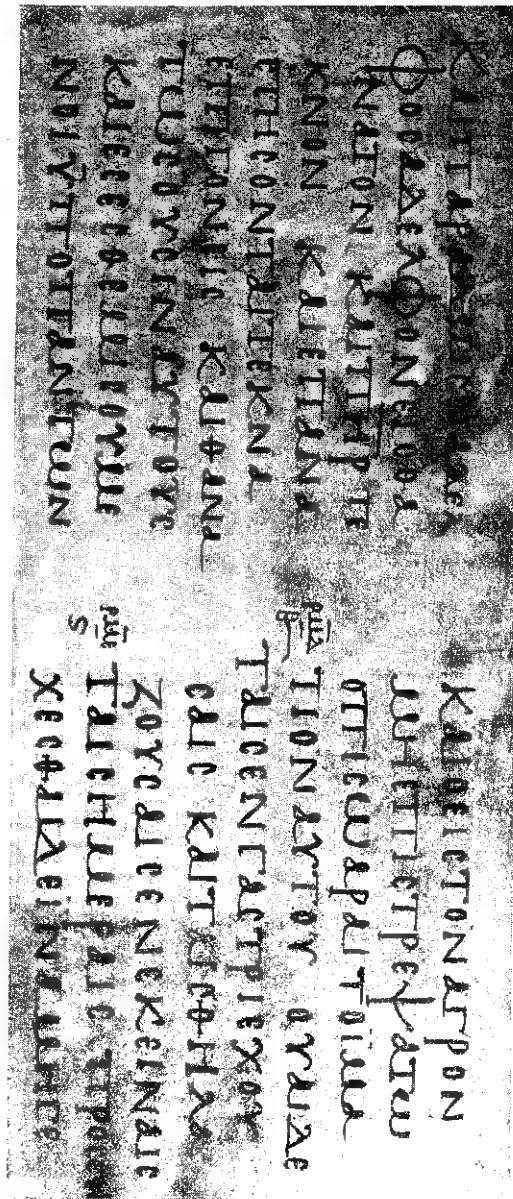 ΦΟϹΑΔΕΛΦΟΝΕΙϹΘΑ
ΝΑΤΟΝ ΚΑΙΠΗΡΤΕ
ΚΝΟΝ ΚΑΙΕΠΑΝΑ
ϹΤΗϹΟΝΤΑΙΤΕΚΝΑ
ΕΠΙΓΟΝΕΙϹ ΚΑΙΘΑΝΑ
ΤΩϹΟΥϹΙΝΑΥΤΟΥϹ
ΚΑΙΕϹΕϹΘΕΜΙϹΟΥΜΕ
ΝΟΙΥΠΟΠΑΝΤΩΝ
ΚΑΙΟΕΙϹΤΟΝΑΓΡΟΝ
ΜΗΕΠΙϹΤΡΕΨΑΤΩ
ΟΠΙϹΩΑΡΑΙΤΟΙΜΑ
ΤΙΟΝΑΥΤΟΥ ΟΥΑΙΔΕ
ΤΑΙϹΕΝΓΑϹΤΡΙΕΧΟΥ
ϹΑΙϹ ΚΑΙΤΑΙϹΘΗΛΑ
ΖΟΥϹΑΙϹΕΝΕΚΕΙΝΑΙϹ
ΤΑΙϹΗΜΕΡΑΙϹ ΠΡΟϹΕΥ
ΧΕϹΘΑΙΔΕΙΝΑΜΗΓΕ